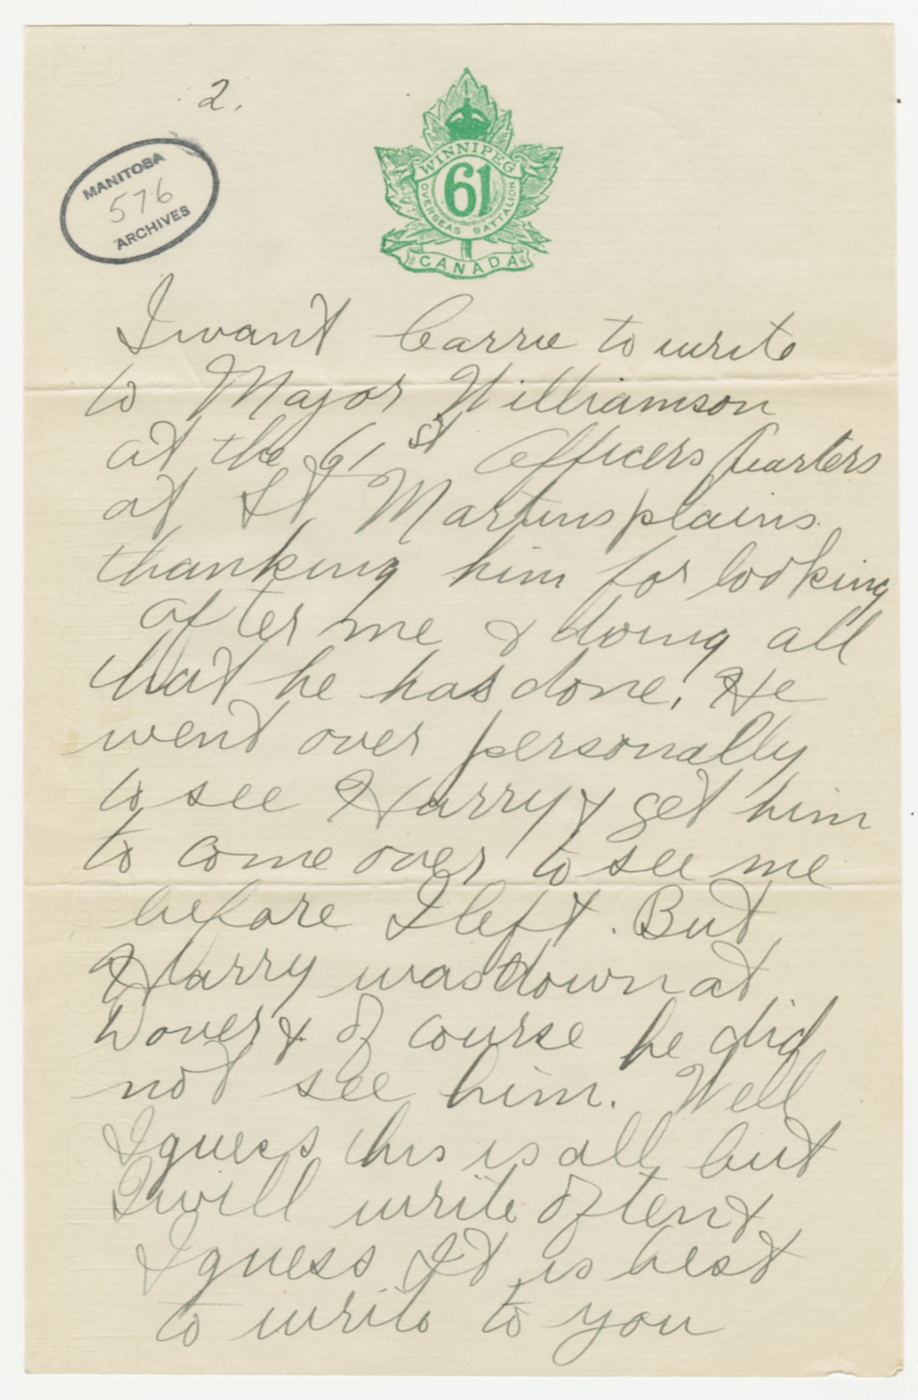 2.
MANITOBA
576
ARCHIVES
WINNIPEG
61
OVERSEAS BATTALION
CANADA
I want Carrie to write
to Major Williamson
at the 61st Officers Quarters
at St Martins plains
thanking him for looking
after me & doing all
that he has done. He
went over personally
to see Harry & get him
to come over to see me
before I left. But
Harry was down at
Dover & of course he did
not see him. Well
I guess this is all but
I will write often &
I guess It is best
to write to you